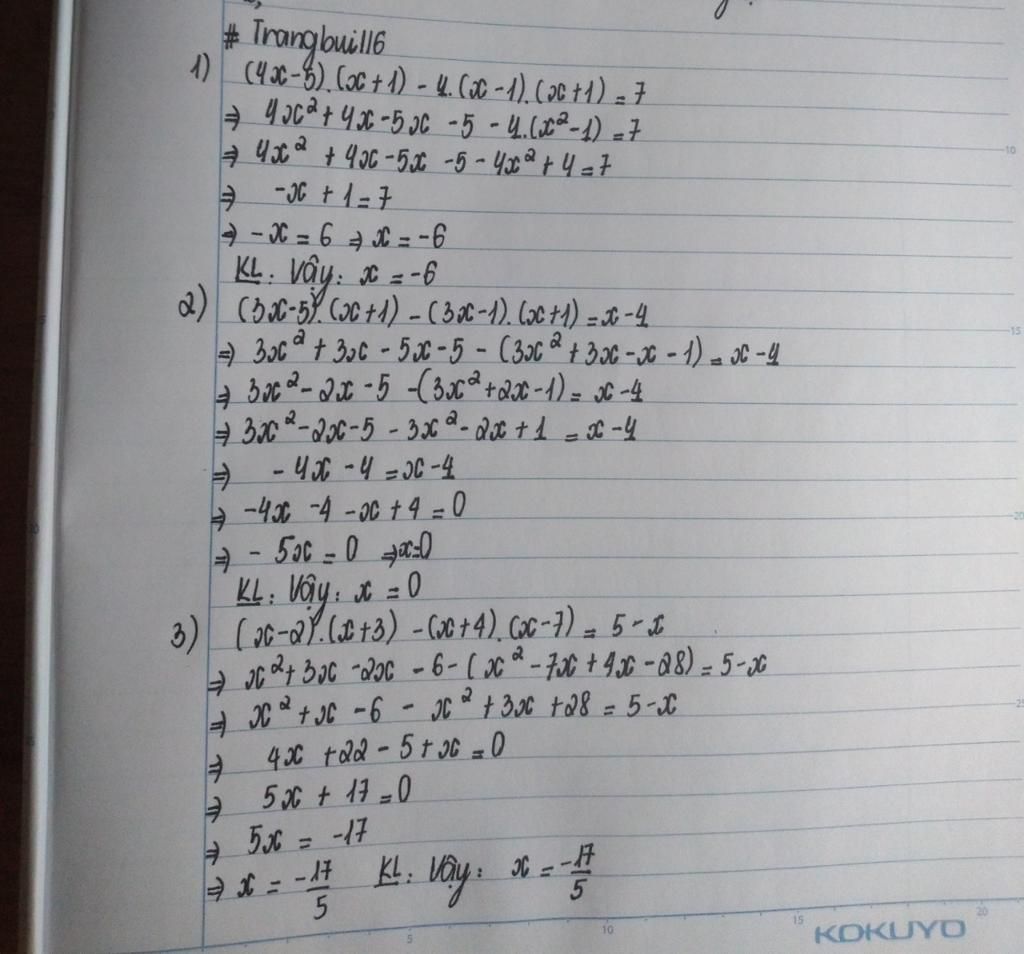 # Trangbui116
1) (4x-5).(x+1) - 4.(x-1).(x+1) = 7
⇒ 4x² + 4x - 5x - 5 - 4.(x²-1) = 7
⇒ 4x² + 4x - 5x - 5 - 4x² + 4 = 7
⇒ -x + 1 = 7
⇒ -x = 6 ⇒ x = -6
KL: Vậy: x = -6
2) (3x-5).(x+1) - (3x-1).(x+1) = x-4
⇒ 3x² + 3x - 5x - 5 - (3x² + 3x - x - 1) = x - 4
⇒ 3x² - 2x - 5 - (3x² + 2x - 1) = x - 4
⇒ 3x² - 2x - 5 - 3x² - 2x + 1 = x - 4
⇒ - 4x - 4 = x - 4
⇒ -4x - 4 - x + 4 = 0
⇒ - 5x = 0 ⇒ x=0
KL: Vậy: x = 0
3) (x-2).(x+3) - (x+4).(x-7) = 5 - x
⇒ x² + 3x - 2x - 6 - (x² - 7x + 4x - 28) = 5 - x
⇒ x² + x - 6 - x² + 3x + 28 = 5 - x
⇒ 4x + 22 - 5 + x = 0
⇒ 5x + 17 = 0
⇒ 5x = -17
⇒ x = -17/5 KL: Vậy: x = -17/5
5 10 15 20
KOKUYO